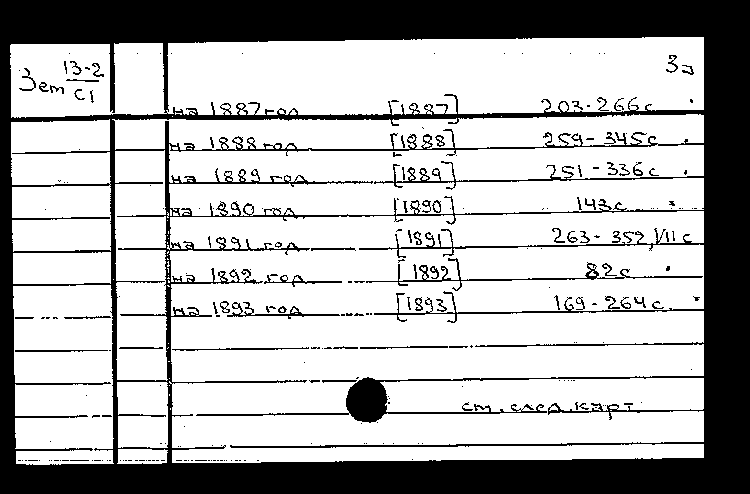 Зем 13-2
С1
3а
на 1887 год [1887] 203-266 с
на 1888 год [1888] 259-345 с
на 1889 год [1889] 251-336 с
на 1890 год [1890] 143 с
на 1891 год [1891] 263-352, VII с
на 1892 год [1892] 82 с
на 1893 год [1893] 169-264 с
см. след. карт.